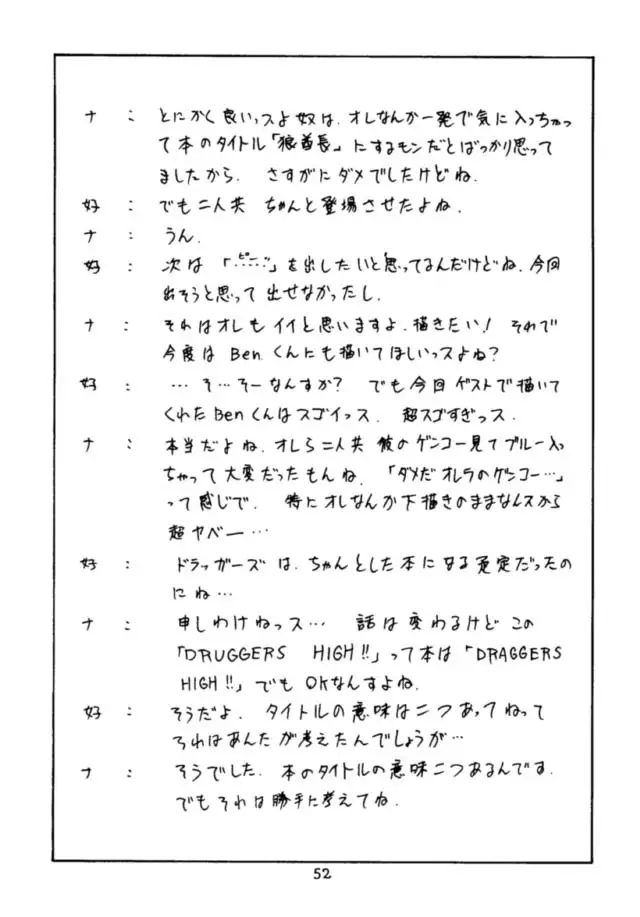 ナ： とにかく良いっスよ奴は. オレなんか一発で気に入っちゃっ
て本のタイトル「狼酋長」にするモンだとばっかり思って
ましたから. さすがにダメでしたけどね.
好： でも二人共 ちゃんと登場させたよね.
ナ： うん.
好： 次は「ピー」を出したいと思ってるんだけどね. 今回
出そうと思って 出せなかったし.
ナ： それはオレもイイと思いますよ. 描きたい! それで
今度は Ben. くんにも描いてほしいっスよね?
好： …そ…そーなんすか? でも今回ゲストで描いて
くれた Ben くんはスゴイっス. 超スゴすぎっス.
ナ： 本当だよね. オレら二人共 彼のゲンコー見てブルー入っ
ちゃって大変だったもんね. 「ダメだオレラのゲンコー…」
って感じで. 特にオレなんか下描きのままなんスから
超ヤベー…
好： ドラッガーズは. ちゃんとした本になる予定だったの
にね…
ナ： 申しわけねっス… 話は変わるけどこの
「DRUGGERS HIGH!!」って本は「DRAGGERS
HIGH!!」でも OKなんすよね.
好： そうだよ. タイトルの意味は二つあってねって
それはあんたが考えたんでしょうが…
ナ： そうでした. 本のタイトルの意味二つあるんです.
でもそれは勝手に考えてね.
52